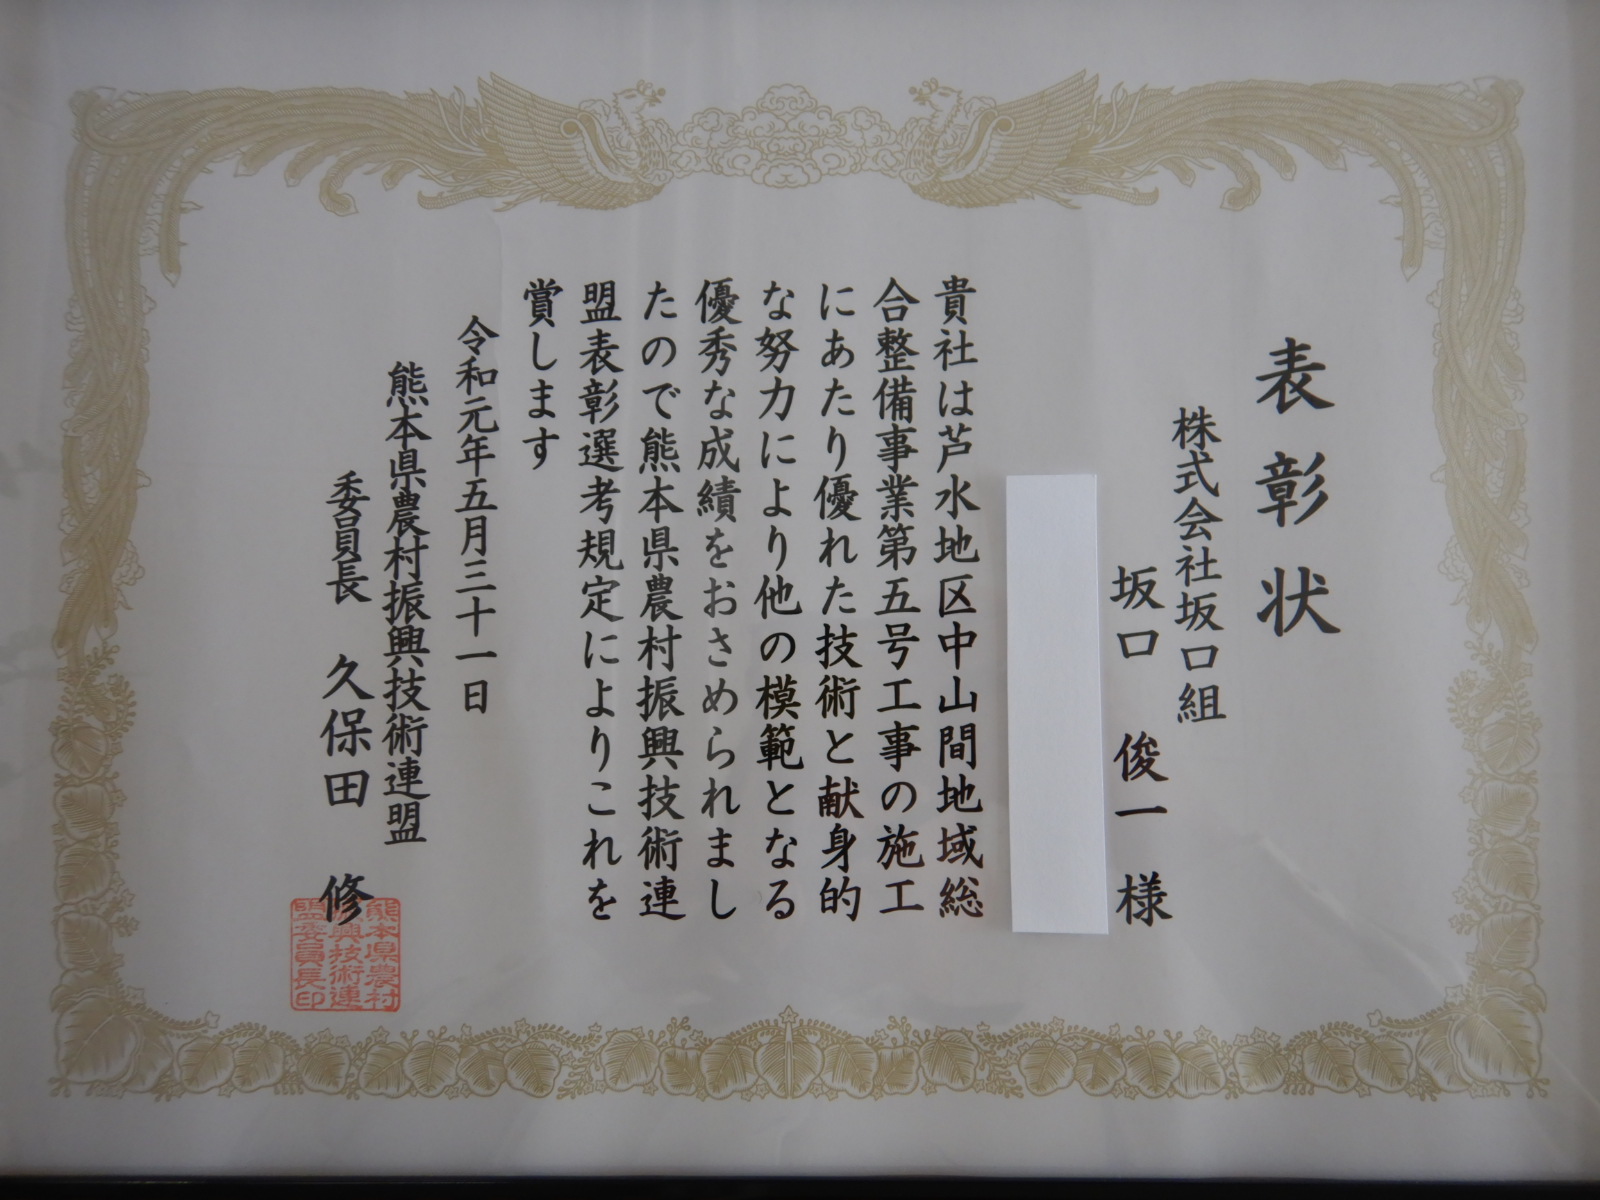 表彰状
株式会社坂口組
坂口 俊一 様
貴社は芦水地区中山間地域総
合整備事業第五号工事の施工
にあたり優れた技術と献身的
な努力により他の模範となる
優秀な成績をおさめられまし
たので熊本県農村振興技術連
盟表彰選考規定によりこれを
賞します
令和元年五月三十一日
熊本県農村振興技術連盟
委員長 久保田 修
熊本県農村
振興技術連
盟委員長印